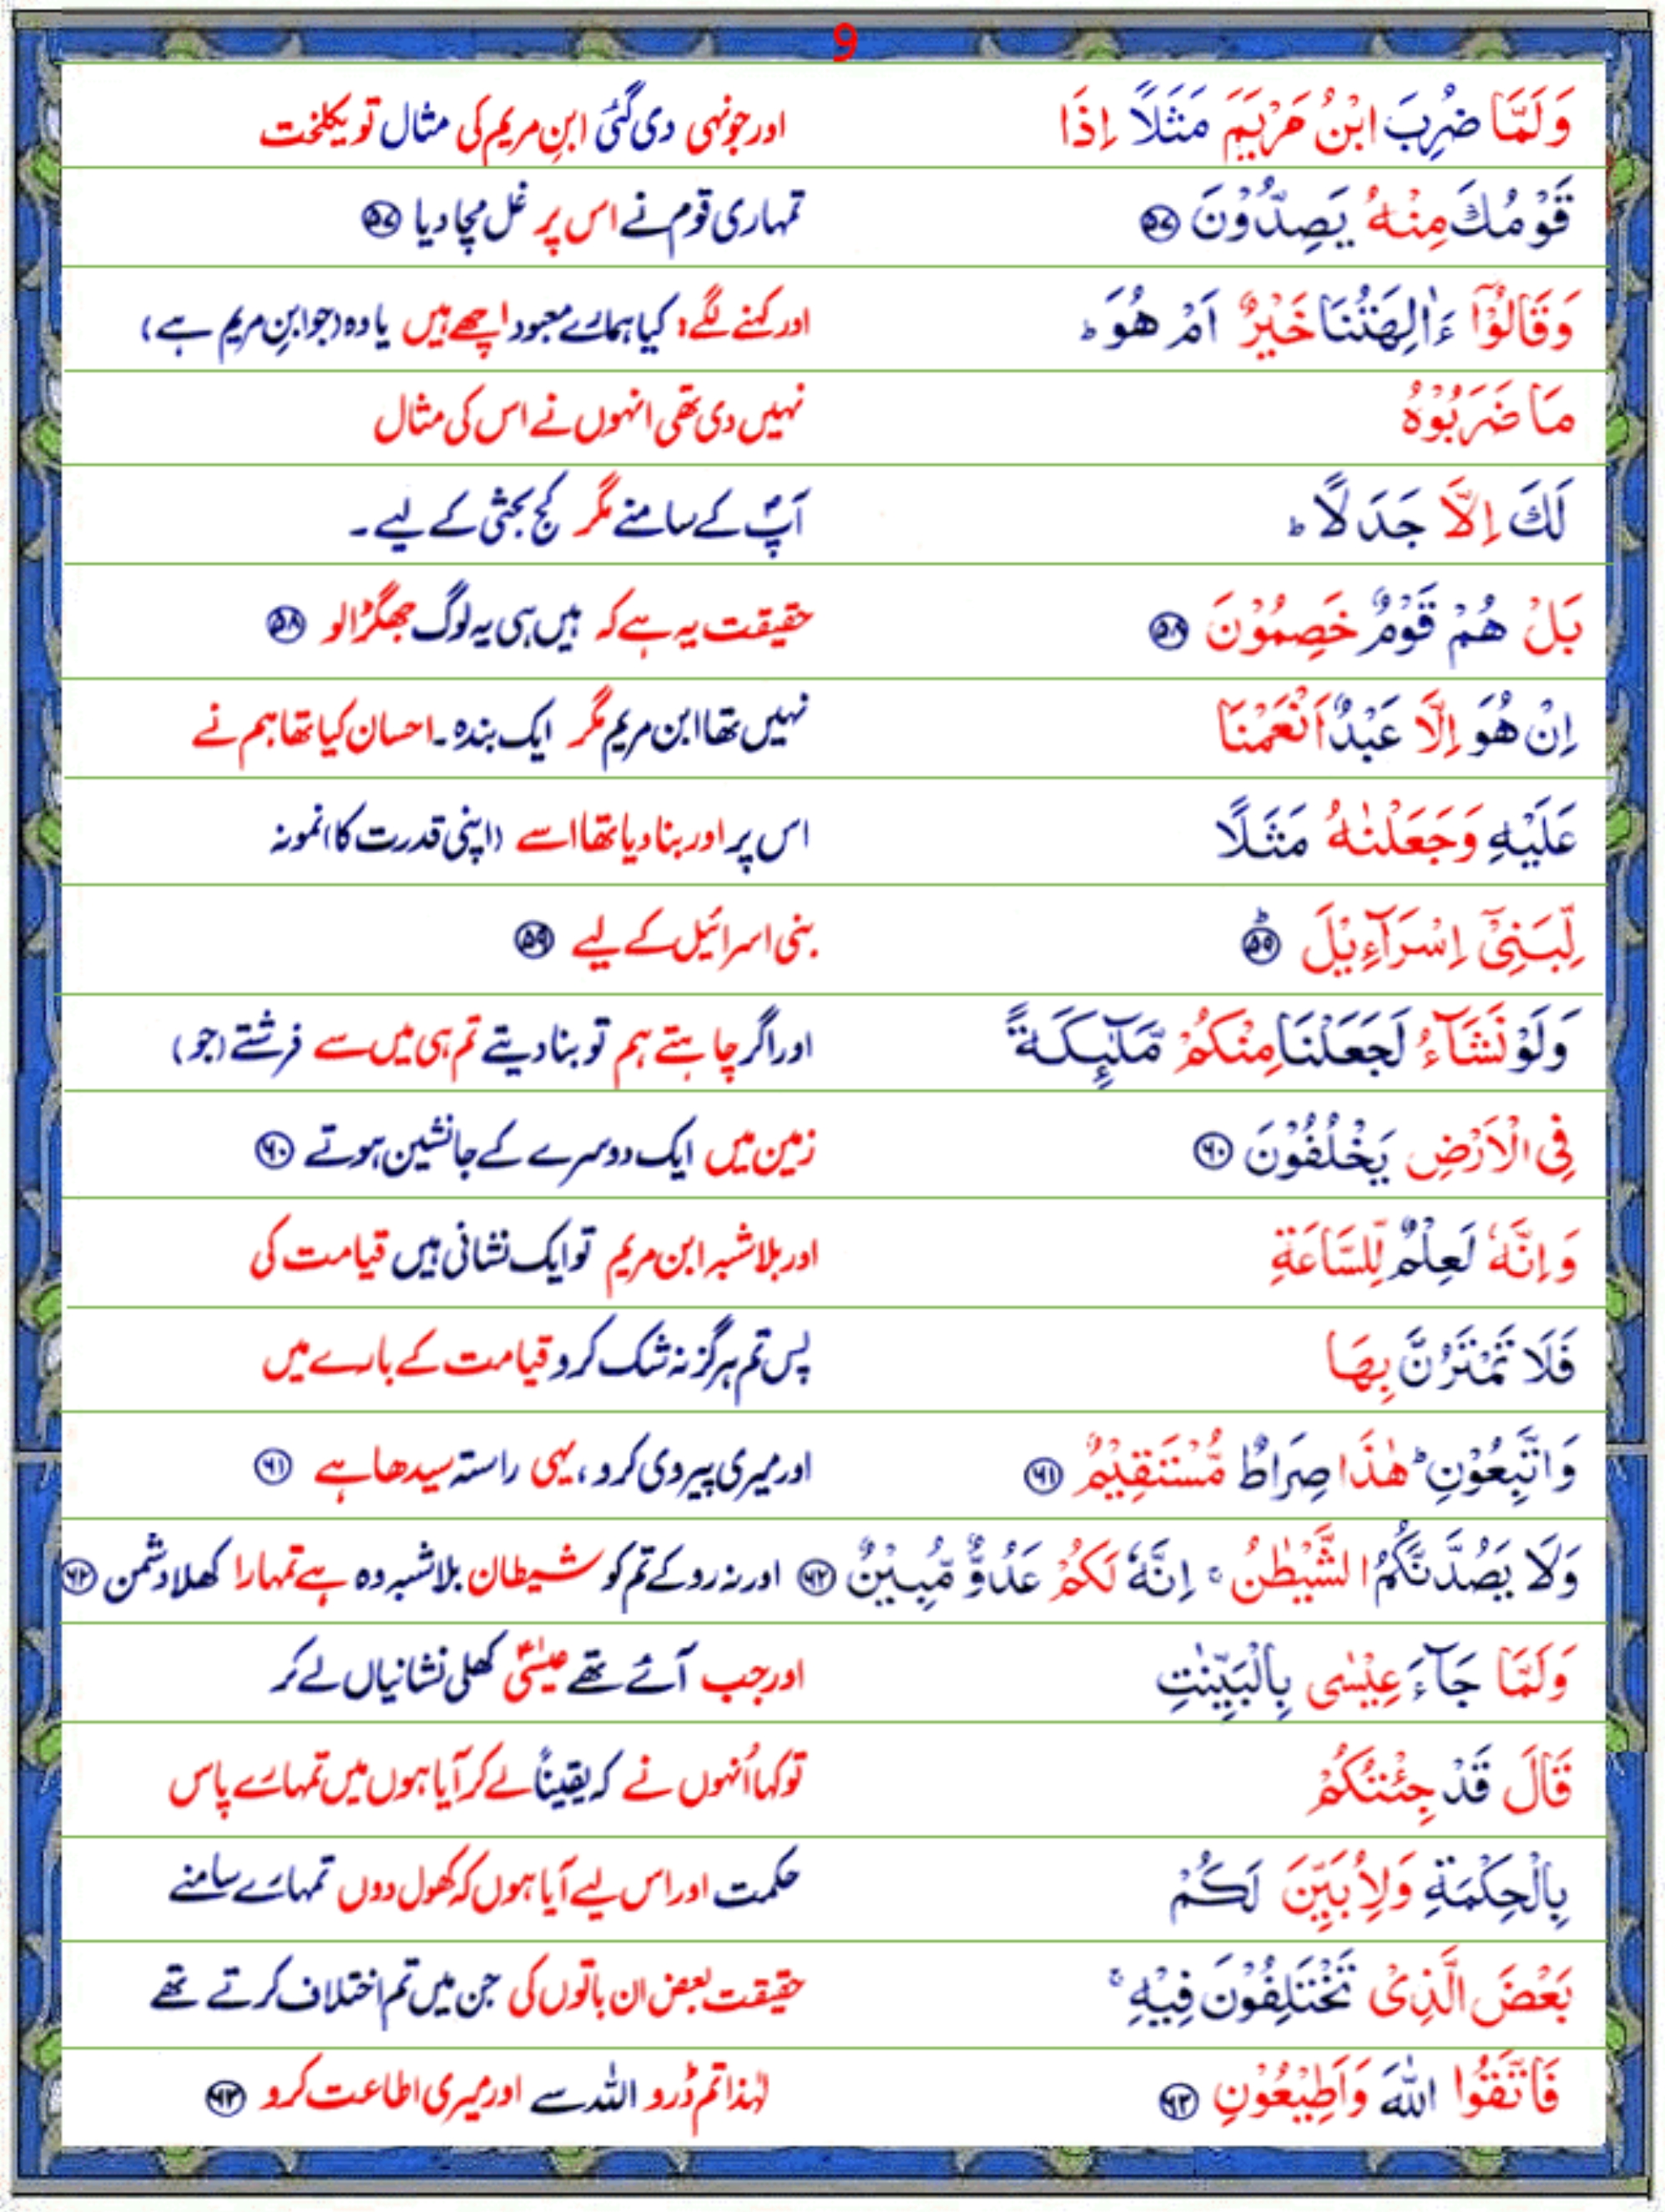 9
وَلَمَّا ضُرِبَ ابْنُ مَرْيَمَ مَثَلًا اِذَا اور جونہی دی گئی ابنِ مریم کی مثال تو یکلخت
قَوْمُكَ مِنْهُ يَصِدُّوْنَ ۵۷ تمہاری قوم نے اس پر غل مچا دیا ۵۷
وَقَالُوْٓا ءَاٰلِهَتُنَا خَيْرٌ اَمْ هُوَ ؕ اور کہنے لگے: کیا ہمارے معبود اچھے ہیں یا وہ (جو ابنِ مریم ہے)
مَا ضَرَبُوْهُ نہیں دی تھی انہوں نے اس کی مثال
لَكَ اِلَّا جَدَلًا ؕ آپؐ کے سامنے مگر کج بحثی کے لیے۔
بَلْ هُمْ قَوْمٌ خَصِمُوْنَ ۵۸ حقیقت یہ ہے کہ ہیں ہی یہ لوگ جھگڑالو ۵۸
اِنْ هُوَ اِلَّا عَبْدٌ اَنْعَمْنَا نہیں تھا ابن مریم مگر ایک بندہ۔ احسان کیا تھا ہم نے
عَلَيْهِ وَجَعَلْنٰهُ مَثَلًا اس پر اور بنا دیا تھا اسے (اپنی قدرت کا) نمونہ
لِّبَنِيْٓ اِسْرَآءِيْلَ ؕ ۵۹ بنی اسرائیل کے لیے ۵۹
وَلَوْ نَشَآءُ لَجَعَلْنَا مِنْكُمْ مَّلٰٓئِكَةً اور اگر چاہتے ہم تو بنا دیتے تم ہی میں سے فرشتے (جو)
فِي الْاَرْضِ يَخْلُفُوْنَ ۶۰ زمین میں ایک دوسرے کے جانشین ہوتے ۶۰
وَاِنَّهٗ لَعِلْمٌ لِّلسَّاعَةِ اور بلاشبہ ابن مریم تو ایک نشانی ہیں قیامت کی
فَلَا تَمْتَرُنَّ بِهَا پس تم ہرگز نہ شک کرو قیامت کے بارے میں
وَاتَّبِعُوْنِ ؕ هٰذَا صِرَاطٌ مُّسْتَقِيْمٌ ۶۱ اور میری پیروی کرو، یہی راستہ سیدھا ہے ۶۱
وَلَا يَصُدَّنَّكُمُ الشَّيْطٰنُ ۚ اِنَّهٗ لَكُمْ عَدُوٌّ مُّبِيْنٌ ۶۲ اور نہ روکے تم کو شیطان بلاشبہ وہ ہے تمہارا کھلا دشمن ۶۲
وَلَمَّا جَآءَ عِيْسٰى بِالْبَيِّنٰتِ اور جب آئے تھے عیسٰیؑ کھلی نشانیاں لے کر
قَالَ قَدْ جِئْتُكُمْ تو کہا اُنہوں نے کہ یقیناً لے کر آیا ہوں میں تمہارے پاس
بِالْحِكْمَةِ وَلِاُبَيِّنَ لَكُمْ حکمت اور اس لیے آیا ہوں کہ کھول دوں تمہارے سامنے
بَعْضَ الَّذِيْ تَخْتَلِفُوْنَ فِيْهِ ۚ حقیقت بعض ان باتوں کی جن میں تم اختلاف کرتے تھے
فَاتَّقُوا اللّٰهَ وَاَطِيْعُوْنِ ۶۳ لہٰذا تم ڈرو اللہ سے اور میری اطاعت کرو ۶۳